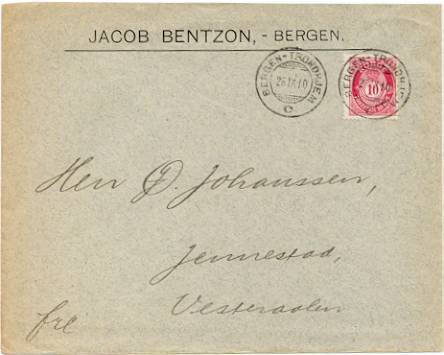 JACOB BENTZON, - BERGEN.
BERGEN-TRONDHJEM
26 IX 10
C
BERGEN-TRONDHJEM
10
Herr D. Johanssen,
Jennestad,
Vesteraalen
frc